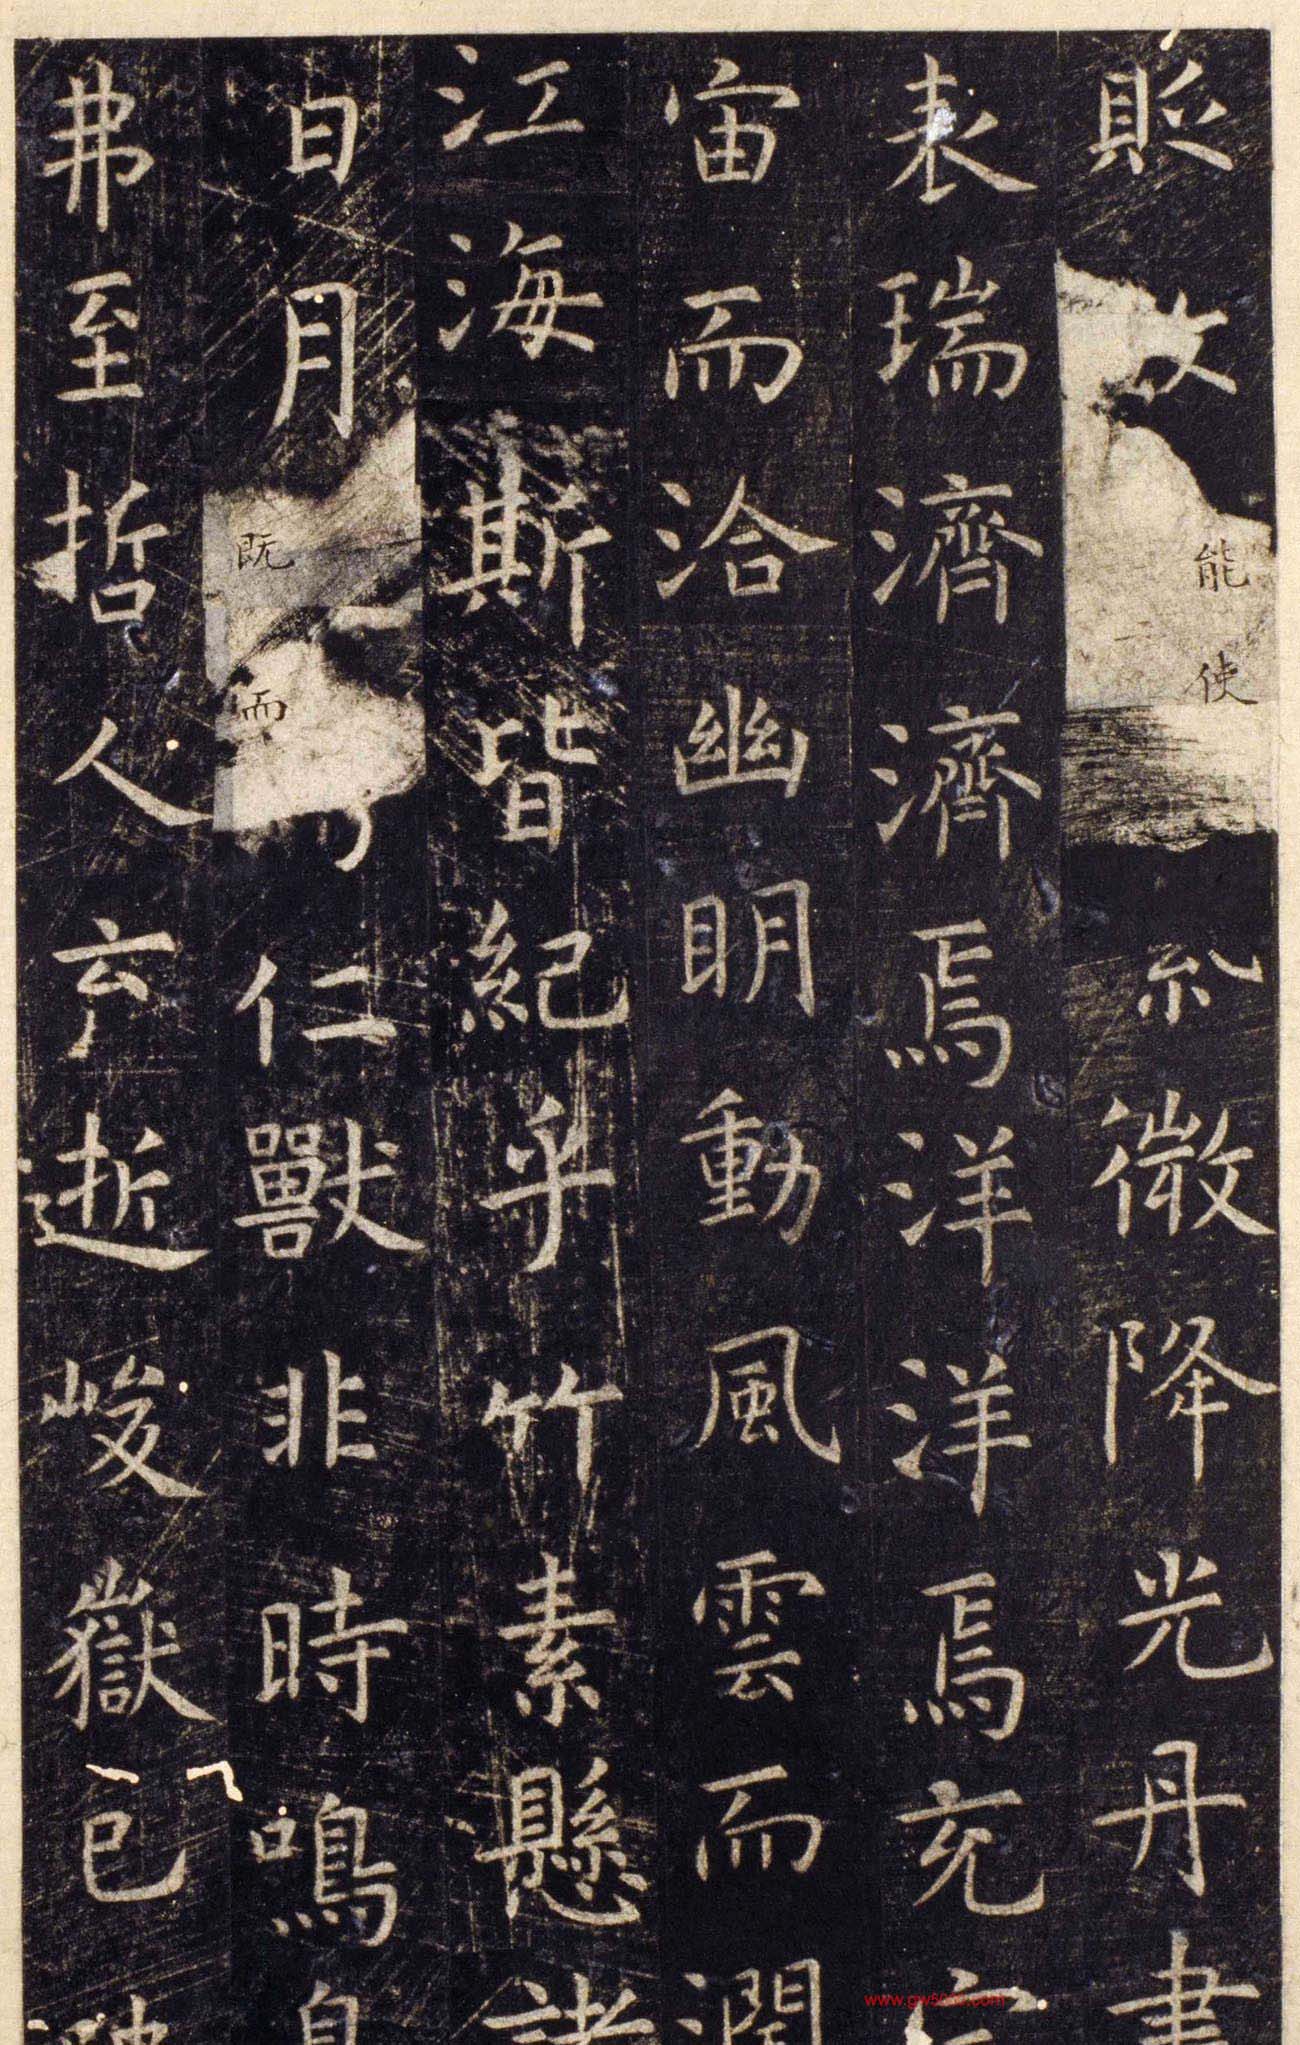 貶故能使紫微降光丹書
表瑞濟濟焉洋洋焉充宇
宙而洽幽明動風雲而潤
江海斯皆紀乎竹素懸諸
日月既而仁獸非時鳴鳥
弗至哲人云逝峻嶽已
www.gw5000.com